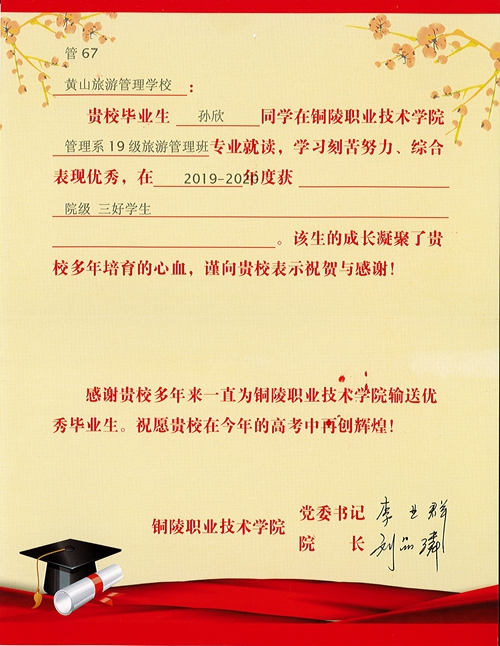 管 67
黄山旅游管理学校：
贵校毕业生 孙欣 同学在铜陵职业技术学院
管理系19级旅游管理班专业就读，学习刻苦努力、综合
表现优秀，在 2019-2020年度获
院级 三好学生
。该生的成长凝聚了贵
校多年培育的心血，谨向贵校表示祝贺与感谢！
感谢贵校多年来一直为铜陵职业技术学院输送优
秀毕业生。祝愿贵校在今年的高考中再创辉煌！
党委书记 李业群
铜陵职业技术学院
院 长